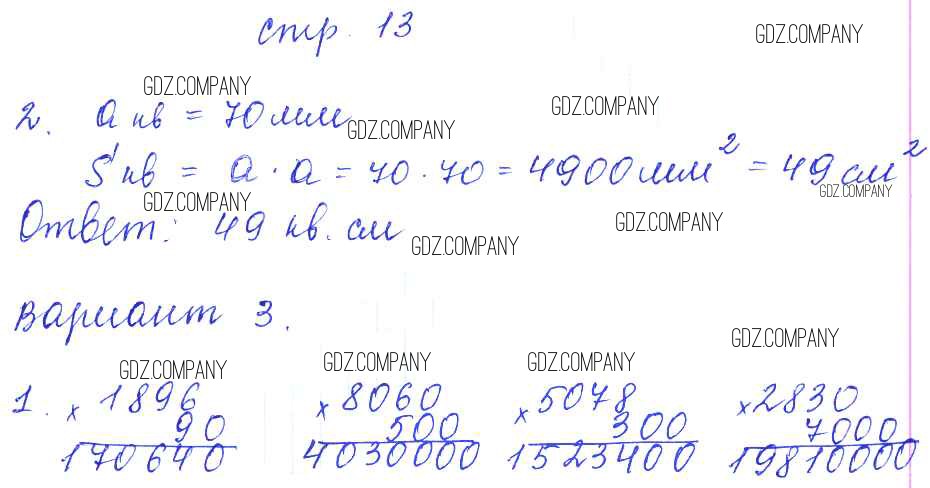 стр. 13
GDZ.COMPANY
GDZ.COMPANY
GDZ.COMPANY
2. a кв = 70 мм
GDZ.COMPANY
S кв = a · a = 70 · 70 = 4900 мм² = 49 см²
GDZ.COMPANY
GDZ.COMPANY
Ответ: 49 кв. см
GDZ.COMPANY
GDZ.COMPANY
Вариант 3.
GDZ.COMPANY
GDZ.COMPANY
GDZ.COMPANY
GDZ.COMPANY
1. × 1896 × 8060 × 5078 × 2830
90 500 300 7000
170640 4030000 1523400 19810000